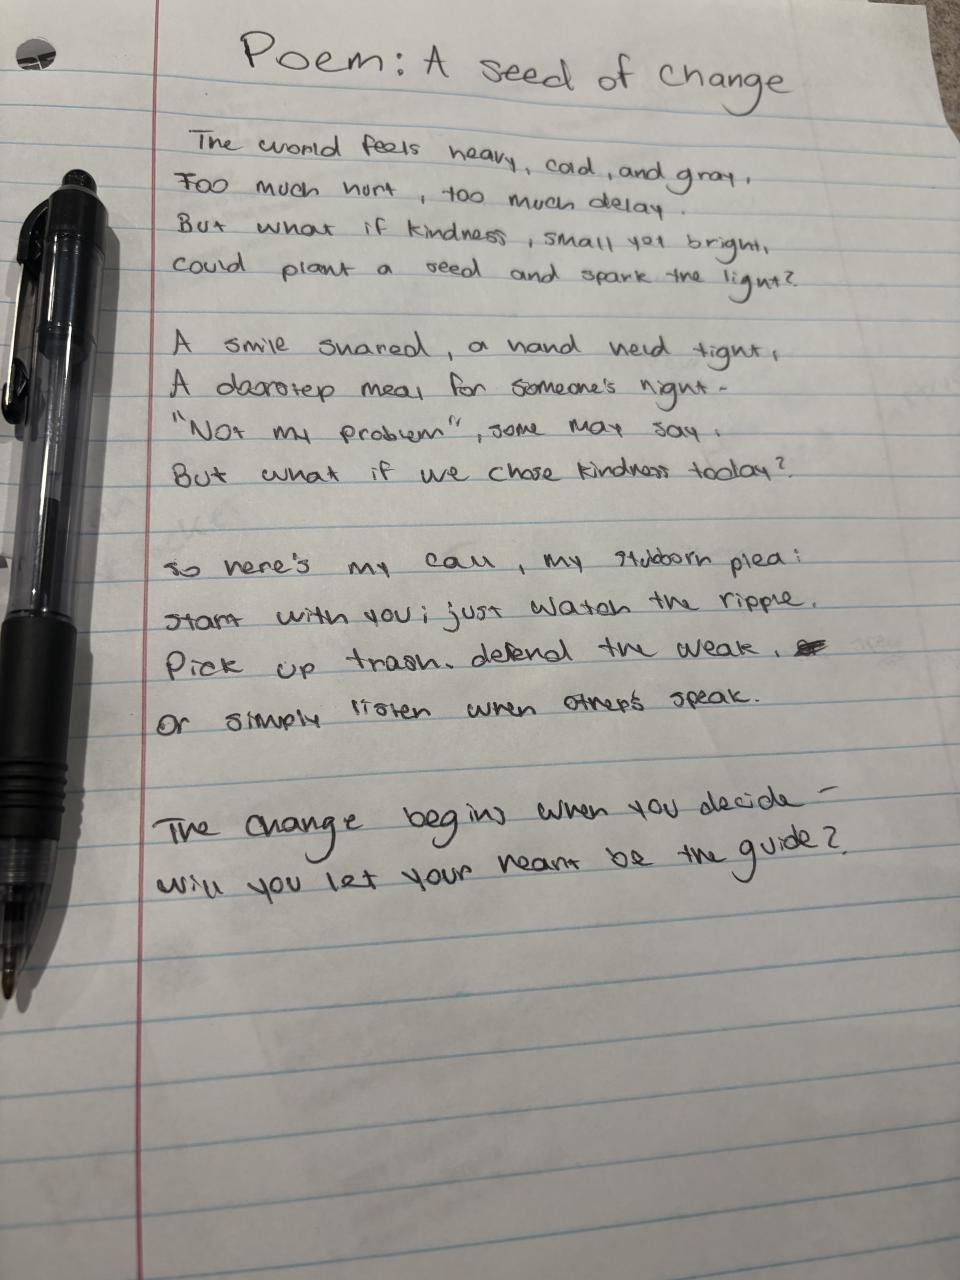 Poem: A seed of change
The world feels heavy, cold, and gray,
Too much hurt, too much delay.
But what if kindness, small yet bright,
could plant a seed and spark the light?
A smile shared, a hand held tight,
A doorstep meal for someone's night-
"Not my problem", some may say,
But what if we chose kindness today?
So here's my call, my stubborn plea:
start with you; just watch the ripple.
Pick up trash. defend the weak,
or simply listen when others speak.
The change begins when you decide -
will you let your heart be the guide?